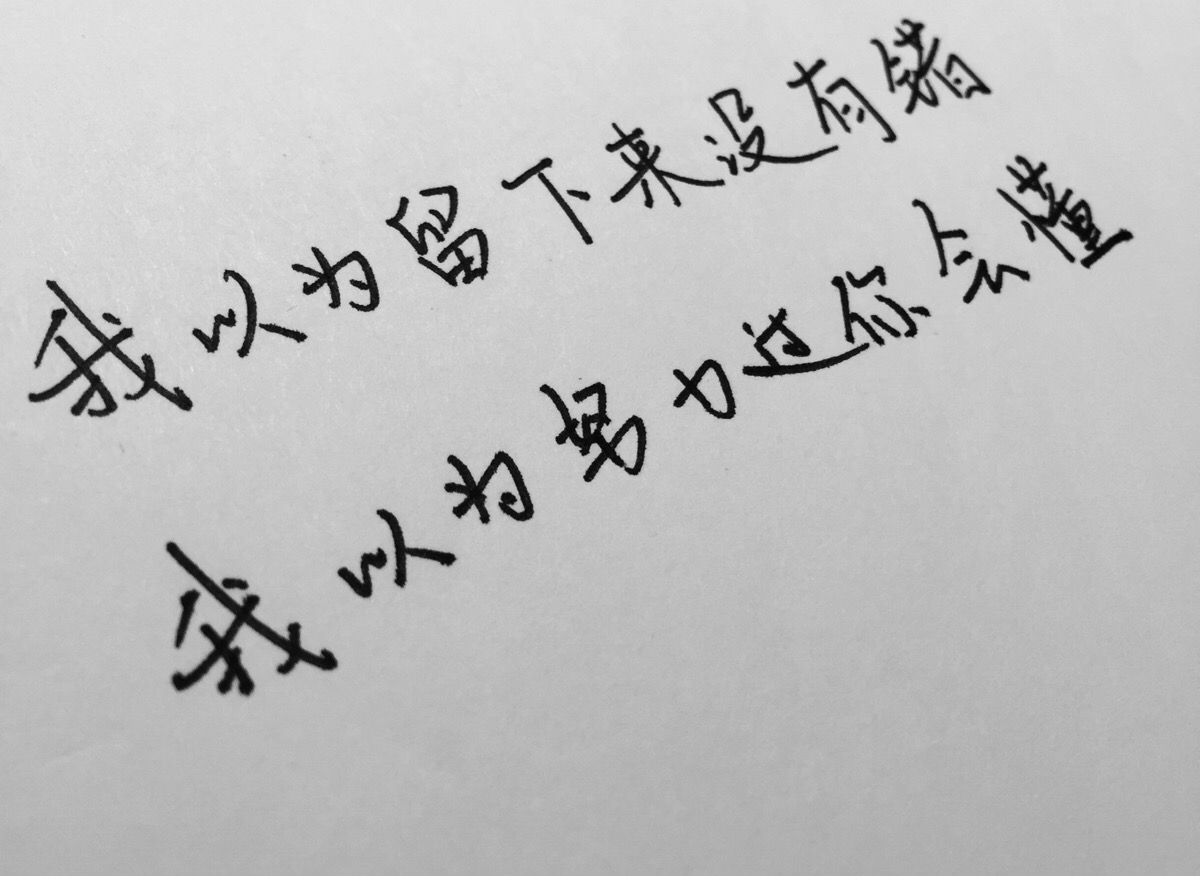 我以为留下来没有错
我以为努力过你会懂